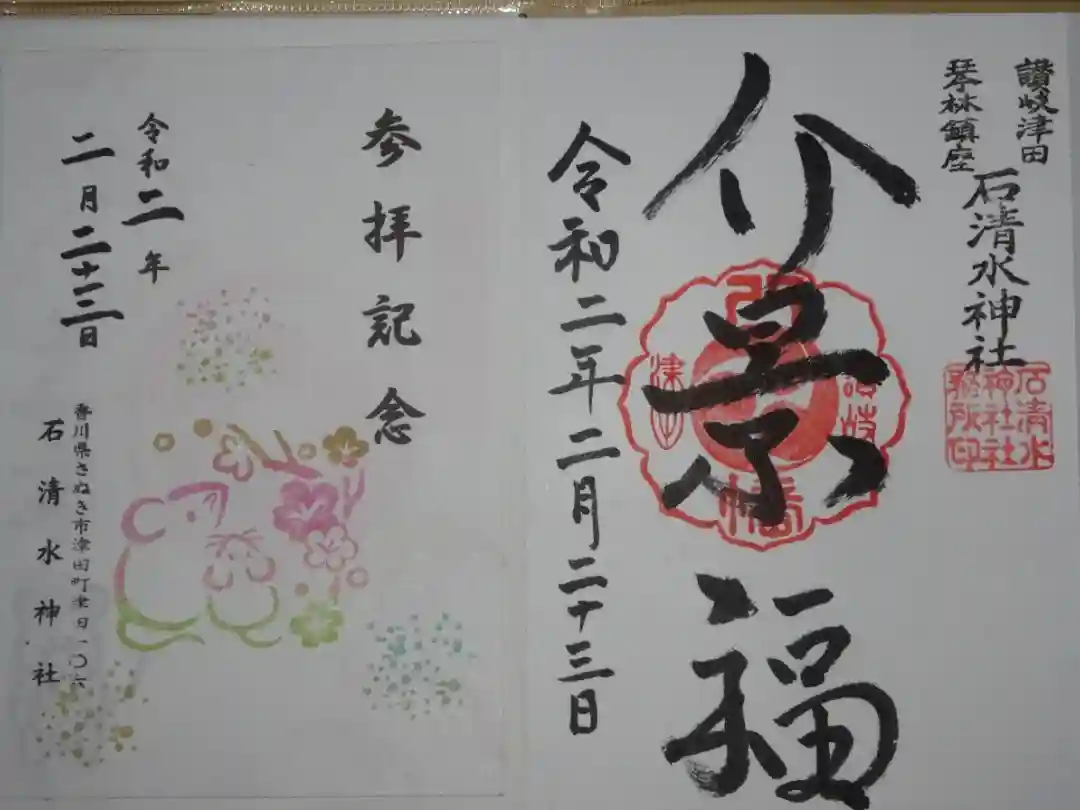 讃岐津田
琴林鎮座
石清水神社
介景福
令和二年二月二十三日
石清水
神社社
務所印
讃岐
津田
八幡
参拝記念
令和二年
二月二十三日
香川県さぬき市津田町津田一〇六
石清水神社